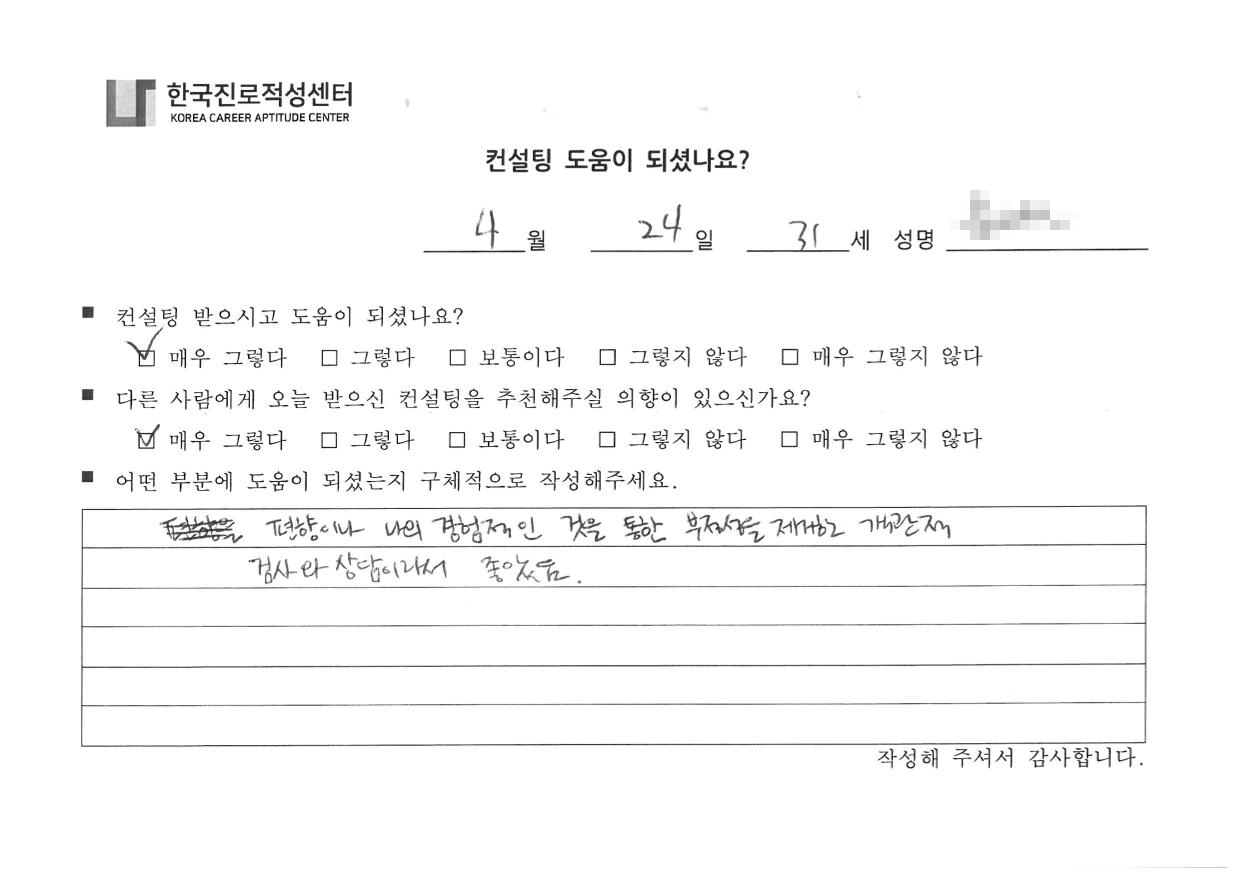 한국진로적성센터
KOREA CAREER APTITUDE CENTER
컨설팅 도움이 되셨나요?
4 월 24 일 31 세 성명
■ 컨설팅 받으시고 도움이 되셨나요?
☑ 매우 그렇다 □ 그렇다 □ 보통이다 □ 그렇지 않다 □ 매우 그렇지 않다
■ 다른 사람에게 오늘 받으신 컨설팅을 추천해주실 의향이 있으신가요?
☑ 매우 그렇다 □ 그렇다 □ 보통이다 □ 그렇지 않다 □ 매우 그렇지 않다
■ 어떤 부분에 도움이 되셨는지 구체적으로 작성해주세요.
편향이나 나의 경험적인 것을 통한 부정성을 제게한 객관적
검사와 상담이라서 좋았음.
작성해 주셔서 감사합니다.